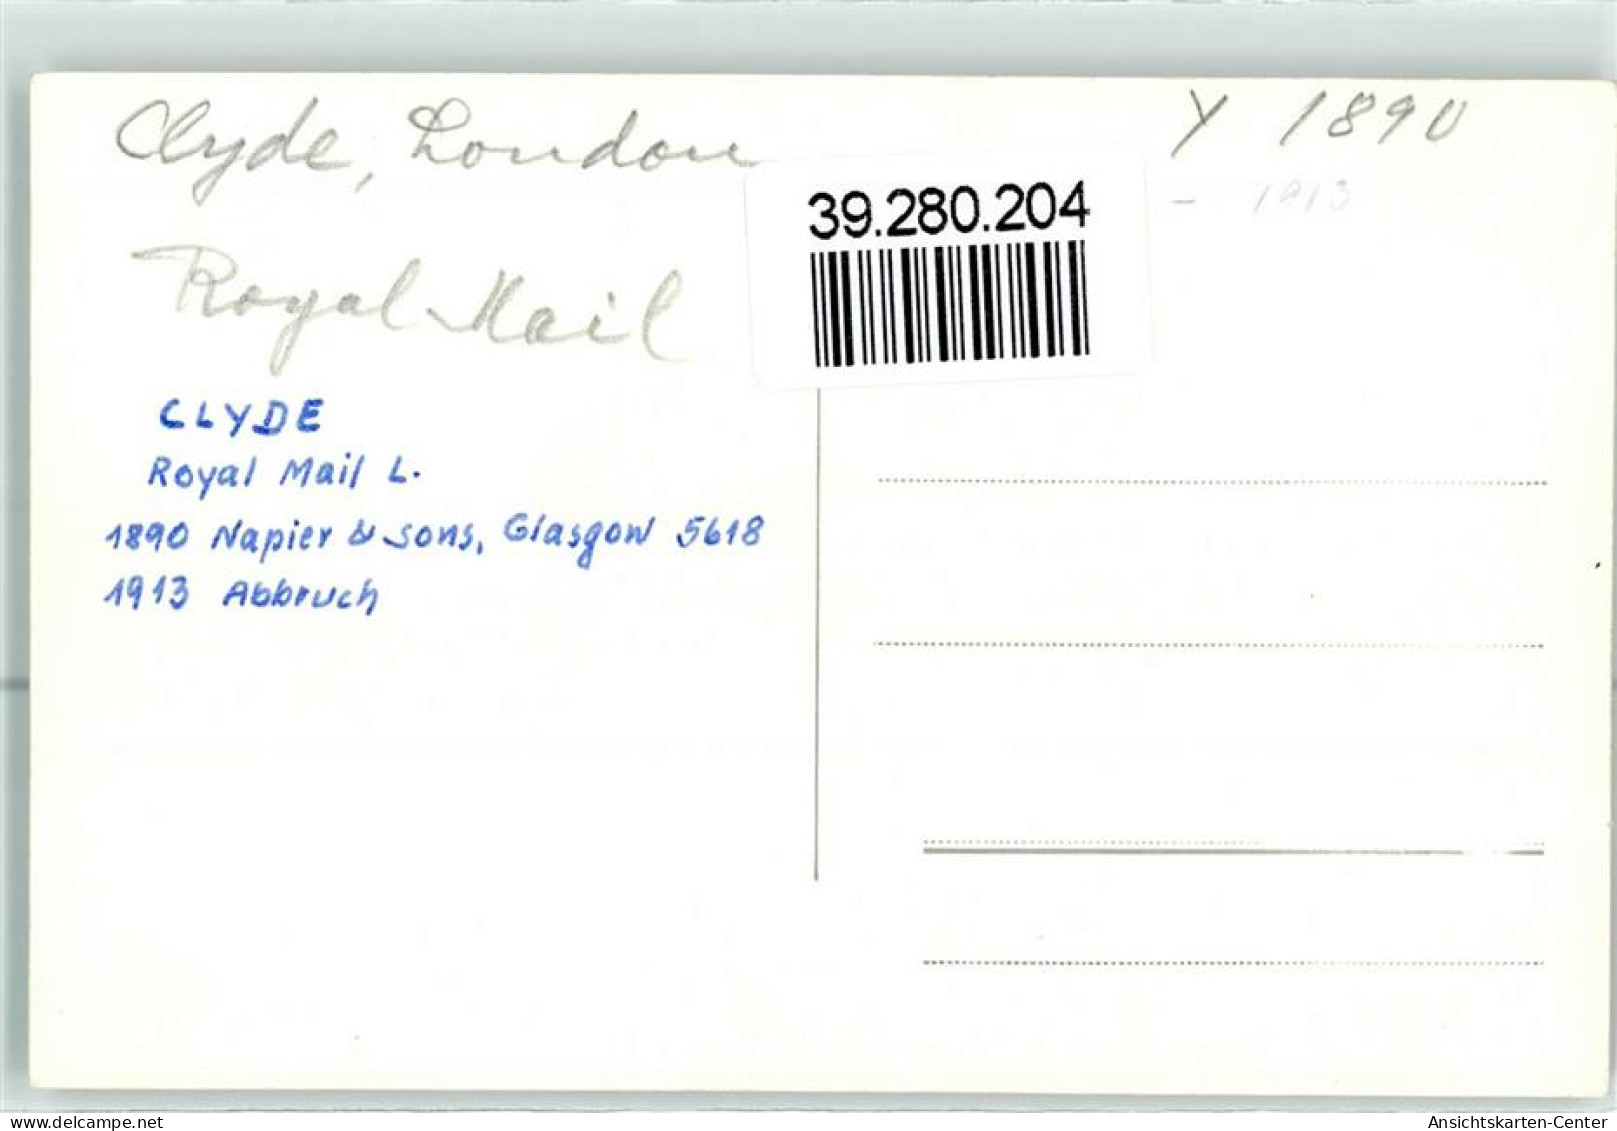 Clyde, London
Y 1890
- 1913
39.280.204
Royal Mail
CLYDE
Royal Mail L.
1890 Napier & Sons, Glasgow 5618
1913 Abbruch
www.delcampe.net
Ansichtskarten-Center